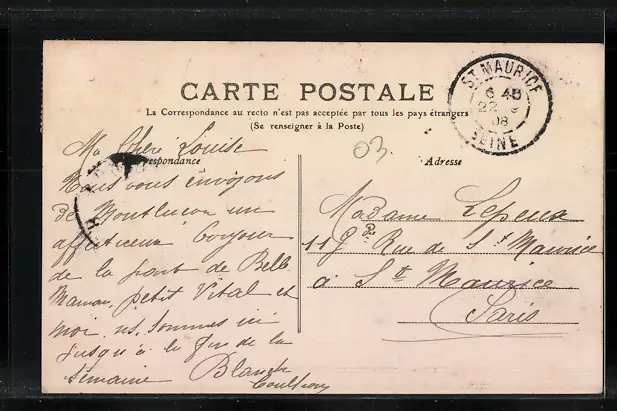 CARTE POSTALE
La Correspondance au recto n'est pas acceptée par tous les pays étrangers
(Se renseigner à la Poste)
ST MAURICE
6 40
22 9
08
SEINE
03
Ma Chère Louise
Nous vous envoyons
de Montluçon un
affectueux bonjour
de la part de Belle
Maman, petit Vital et
moi. ns. sommes ici
jusqu'à la fin de la
Semaine Blanche
Adresse
Madame
Rue de St Maurice
à St Maurice
Paris